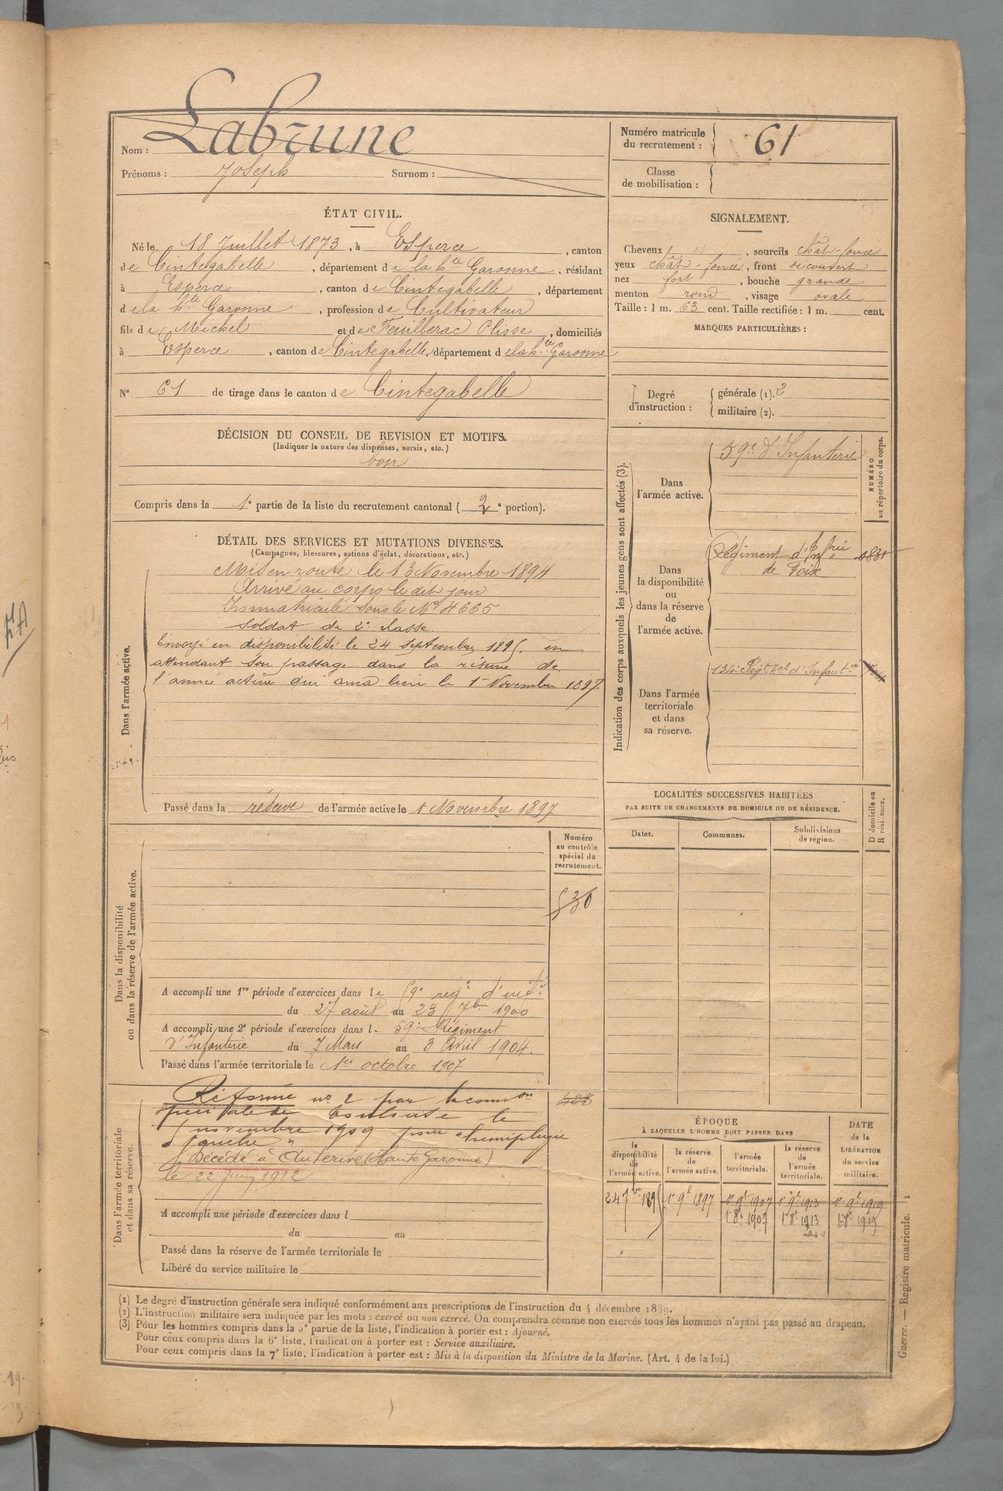 Nom : Labrune
Prénoms : Joseph Surnom :
Numéro matricule du recrutement : 61
Classe de mobilisation :
ÉTAT CIVIL.
Né le 18 Juillet 1873, à Esperce, canton
de Cintegabelle, département de la hte Garonne, résidant
à Esperce, canton de Cintegabelle, département
de la hte Garonne, profession de Cultivateur
fils de Michel et de Feuillerac Elisse, domiciliés
à Esperce, canton de Cintegabelle, département de la hte Garonne
N° 61 de tirage dans le canton de Cintegabelle
SIGNALEMENT.
Cheveux sourcils chât-foncé
yeux chât-foncé, front découvert
nez fort, bouche grande
menton rond, visage ovale
Taille : 1 m. 63 cent. Taille rectifiée : 1 m. cent.
MARQUES PARTICULIÈRES :
Degré d'instruction :
générale (1). 3
militaire (2).
DÉCISION DU CONSEIL DE REVISION ET MOTIFS.
(Indiquer la nature des dispenses, sursis, etc.)
bon
Compris dans la 1e partie de la liste du recrutement cantonal (2e portion).
DÉTAIL DES SERVICES ET MUTATIONS DIVERSES.
(Campagnes, blessures, actions d'éclat, décorations, etc.)
Dans l'armée active.
Mis en route le 13 Novembre 1894
Arrivé au corps le dit jour
Immatriculé sous le No 4665
Soldat de 2e classe.
Envoyé en disponibilité le 24 septembre 1895 en
attendant son passage dans la réserve de
l'armée active qui aura lieu le 1er Novembre 1897
Passé dans la réserve de l'armée active le 1 Novembre 1897
Indication des corps auxquels les jeunes gens sont affectés (3).
NUMÉRO au répertoire du corps.
Dans l'armée active.
59e d'Infanterie
Dans la disponibilité ou dans la réserve de l'armée active.
Régiment d'Infrie
de Foix
Dans l'armée territoriale et dans sa réserve.
134e Régt tal d'Infantie
LOCALITÉS SUCCESSIVES HABITÉES
PAR SUITE DE CHANGEMENTS DE DOMICILE OU DE RÉSIDENCE.
Dates. Communes. Subdivisions de région.
D domicile ou R résidence.
Dans la disponibilité ou dans la réserve de l'armée active.
Numéro au contrôle spécial du recrutement.
A accompli une 1re période d'exercices dans le 59e régt d'infie
du 27 août au 23 7bre 1900
A accompli une 2e période d'exercices dans l 59e Régiment
d'Infanterie du 7 Mars au 3 Avril 1904.
Passé dans l'armée territoriale le 1er octobre 1907
Dans l'armée territoriale et dans sa réserve.
Réformé no 2 par la comm on
spéciale de Toulouse le
novembre 1909 pour "hémiplégie
gauche"
Décédé à Auterive (Haute Garonne)
le 22 Juin 1912
A accompli une période d'exercices dans l
du au
Passé dans la réserve de l'armée territoriale le
Libéré du service militaire le
ÉPOQUE
À LAQUELLE L'HOMME DOIT PASSER DANS
la disponibilité de l'armée active.
la réserve de l'armée active.
l'armée territoriale.
la réserve de l'armée territoriale.
DATE de la LIBÉRATION du service militaire.
24 7bre 1895 1er 9e 1897 1er 9e 1907 1er 9e 1913 1er 9e 1919
1er 8e 1907 1er 8e 1913 1er 8e 1919
(1) Le degré d'instruction générale sera indiqué conformément aux prescriptions de l'instruction du 4 décembre 1889.
(2) L'instruction militaire sera indiquée par les mots : exercé ou non exercé. On comprendra comme non exercés tous les hommes n'ayant pas passé au drapeau.
(3) Pour les hommes compris dans la 5e partie de la liste, l'indication à porter est : Ajourné.
Pour ceux compris dans la 6e liste, l'indication à porter est : Service auxiliaire.
Pour ceux compris dans la 7e liste, l'indication à porter est : Mis à la disposition du Ministre de la Marine. (Art. 4 de la loi.)
Guerre. — Registre matricule. 1